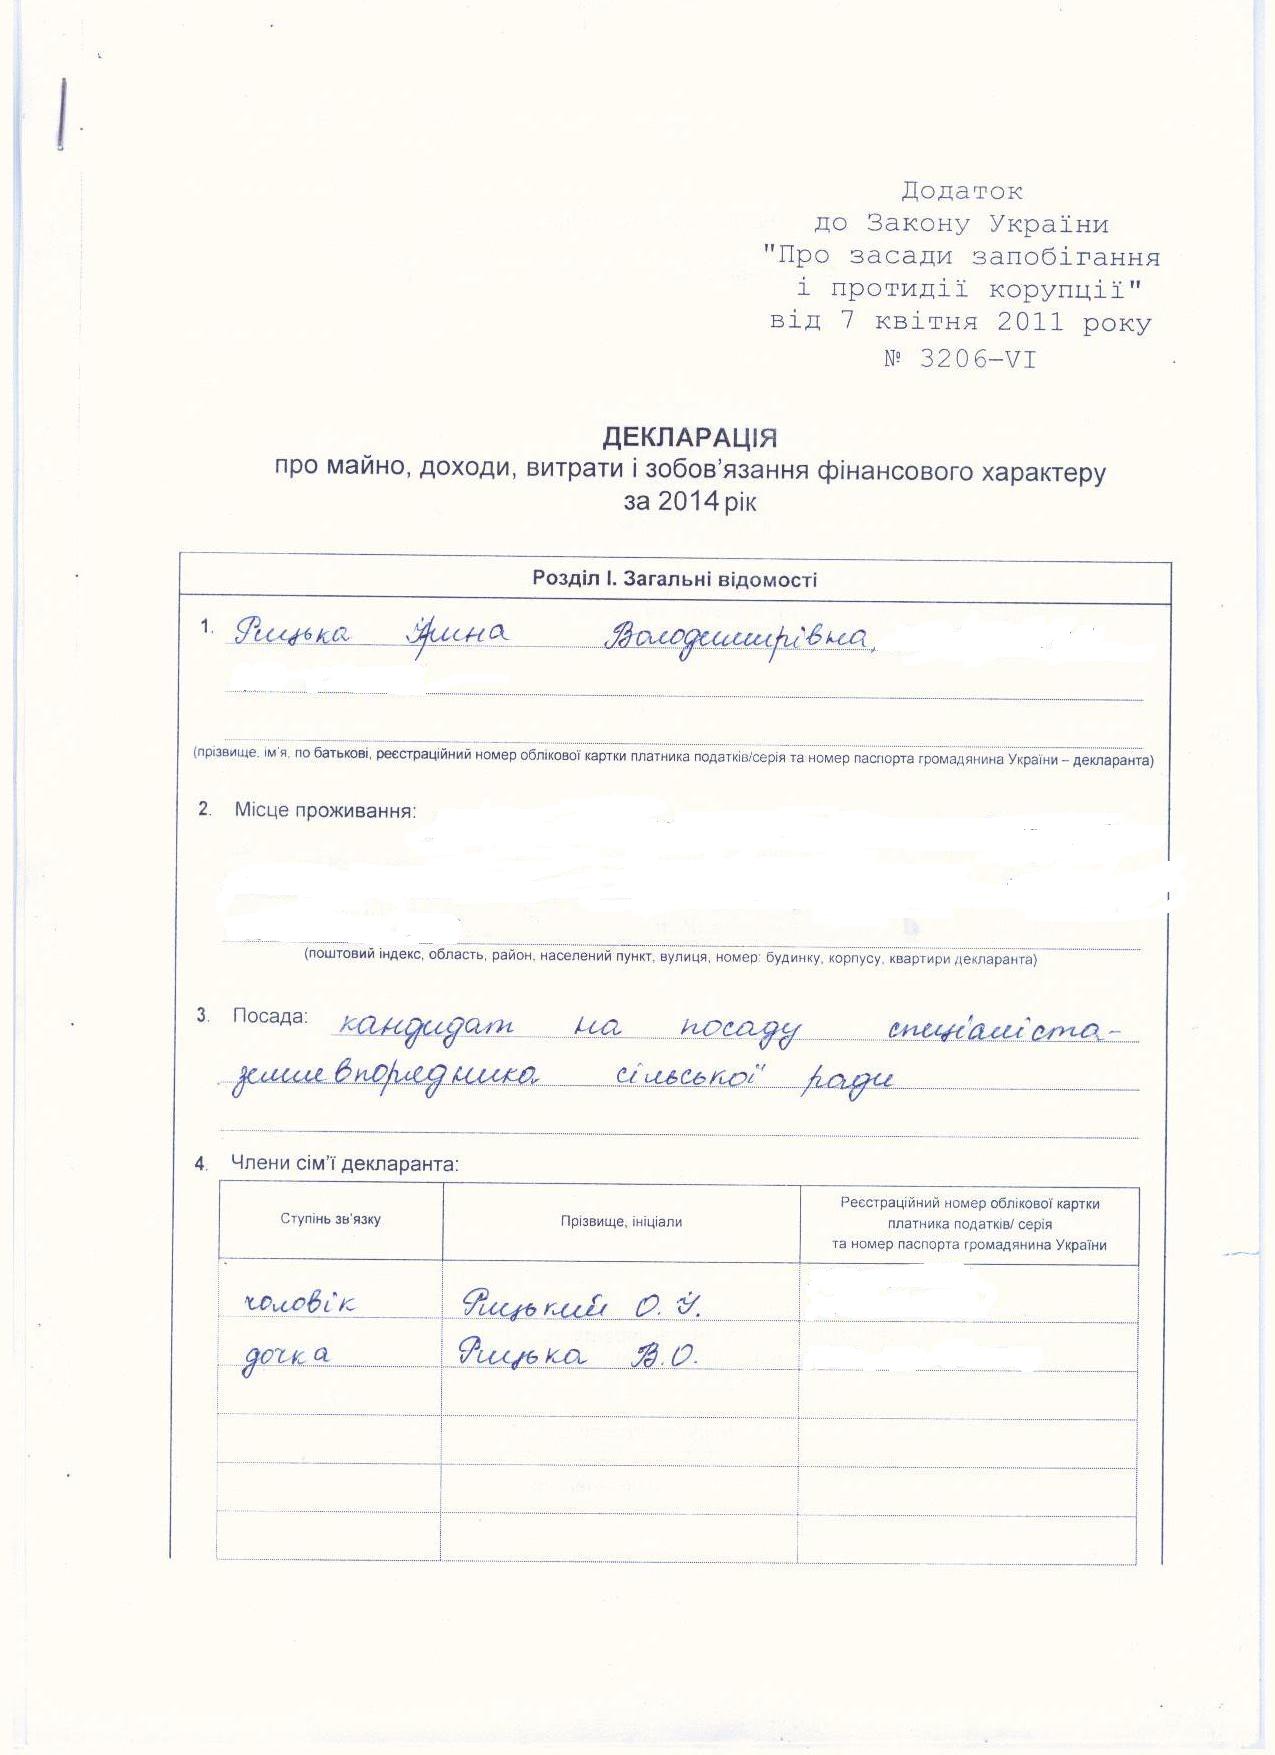 Додаток
до Закону України
"Про засади запобігання
і протидії корупції"
від 7 квітня 2011 року
№ 3206-VI
ДЕКЛАРАЦІЯ
про майно, доходи, витрати і зобов'язання фінансового характеру
за 2014 рік
Розділ І. Загальні відомості
1. Рицька Ірина Володимирівна,
(прізвище, ім'я, по батькові, реєстраційний номер облікової картки платника податків/серія та номер паспорта громадянина України – декларанта)
2. Місце проживання:
(поштовий індекс, область, район, населений пункт, вулиця, номер: будинку, корпусу, квартири декларанта)
3. Посада: кандидат на посаду спеціаліста-
землевпорядника сільської ради
4. Члени сім'ї декларанта:
Ступінь зв'язку Прізвище, ініціали Реєстраційний номер облікової картки
платника податків/ серія
та номер паспорта громадянина України
чоловік Рицький О. У.
дочка Рицька В.О.